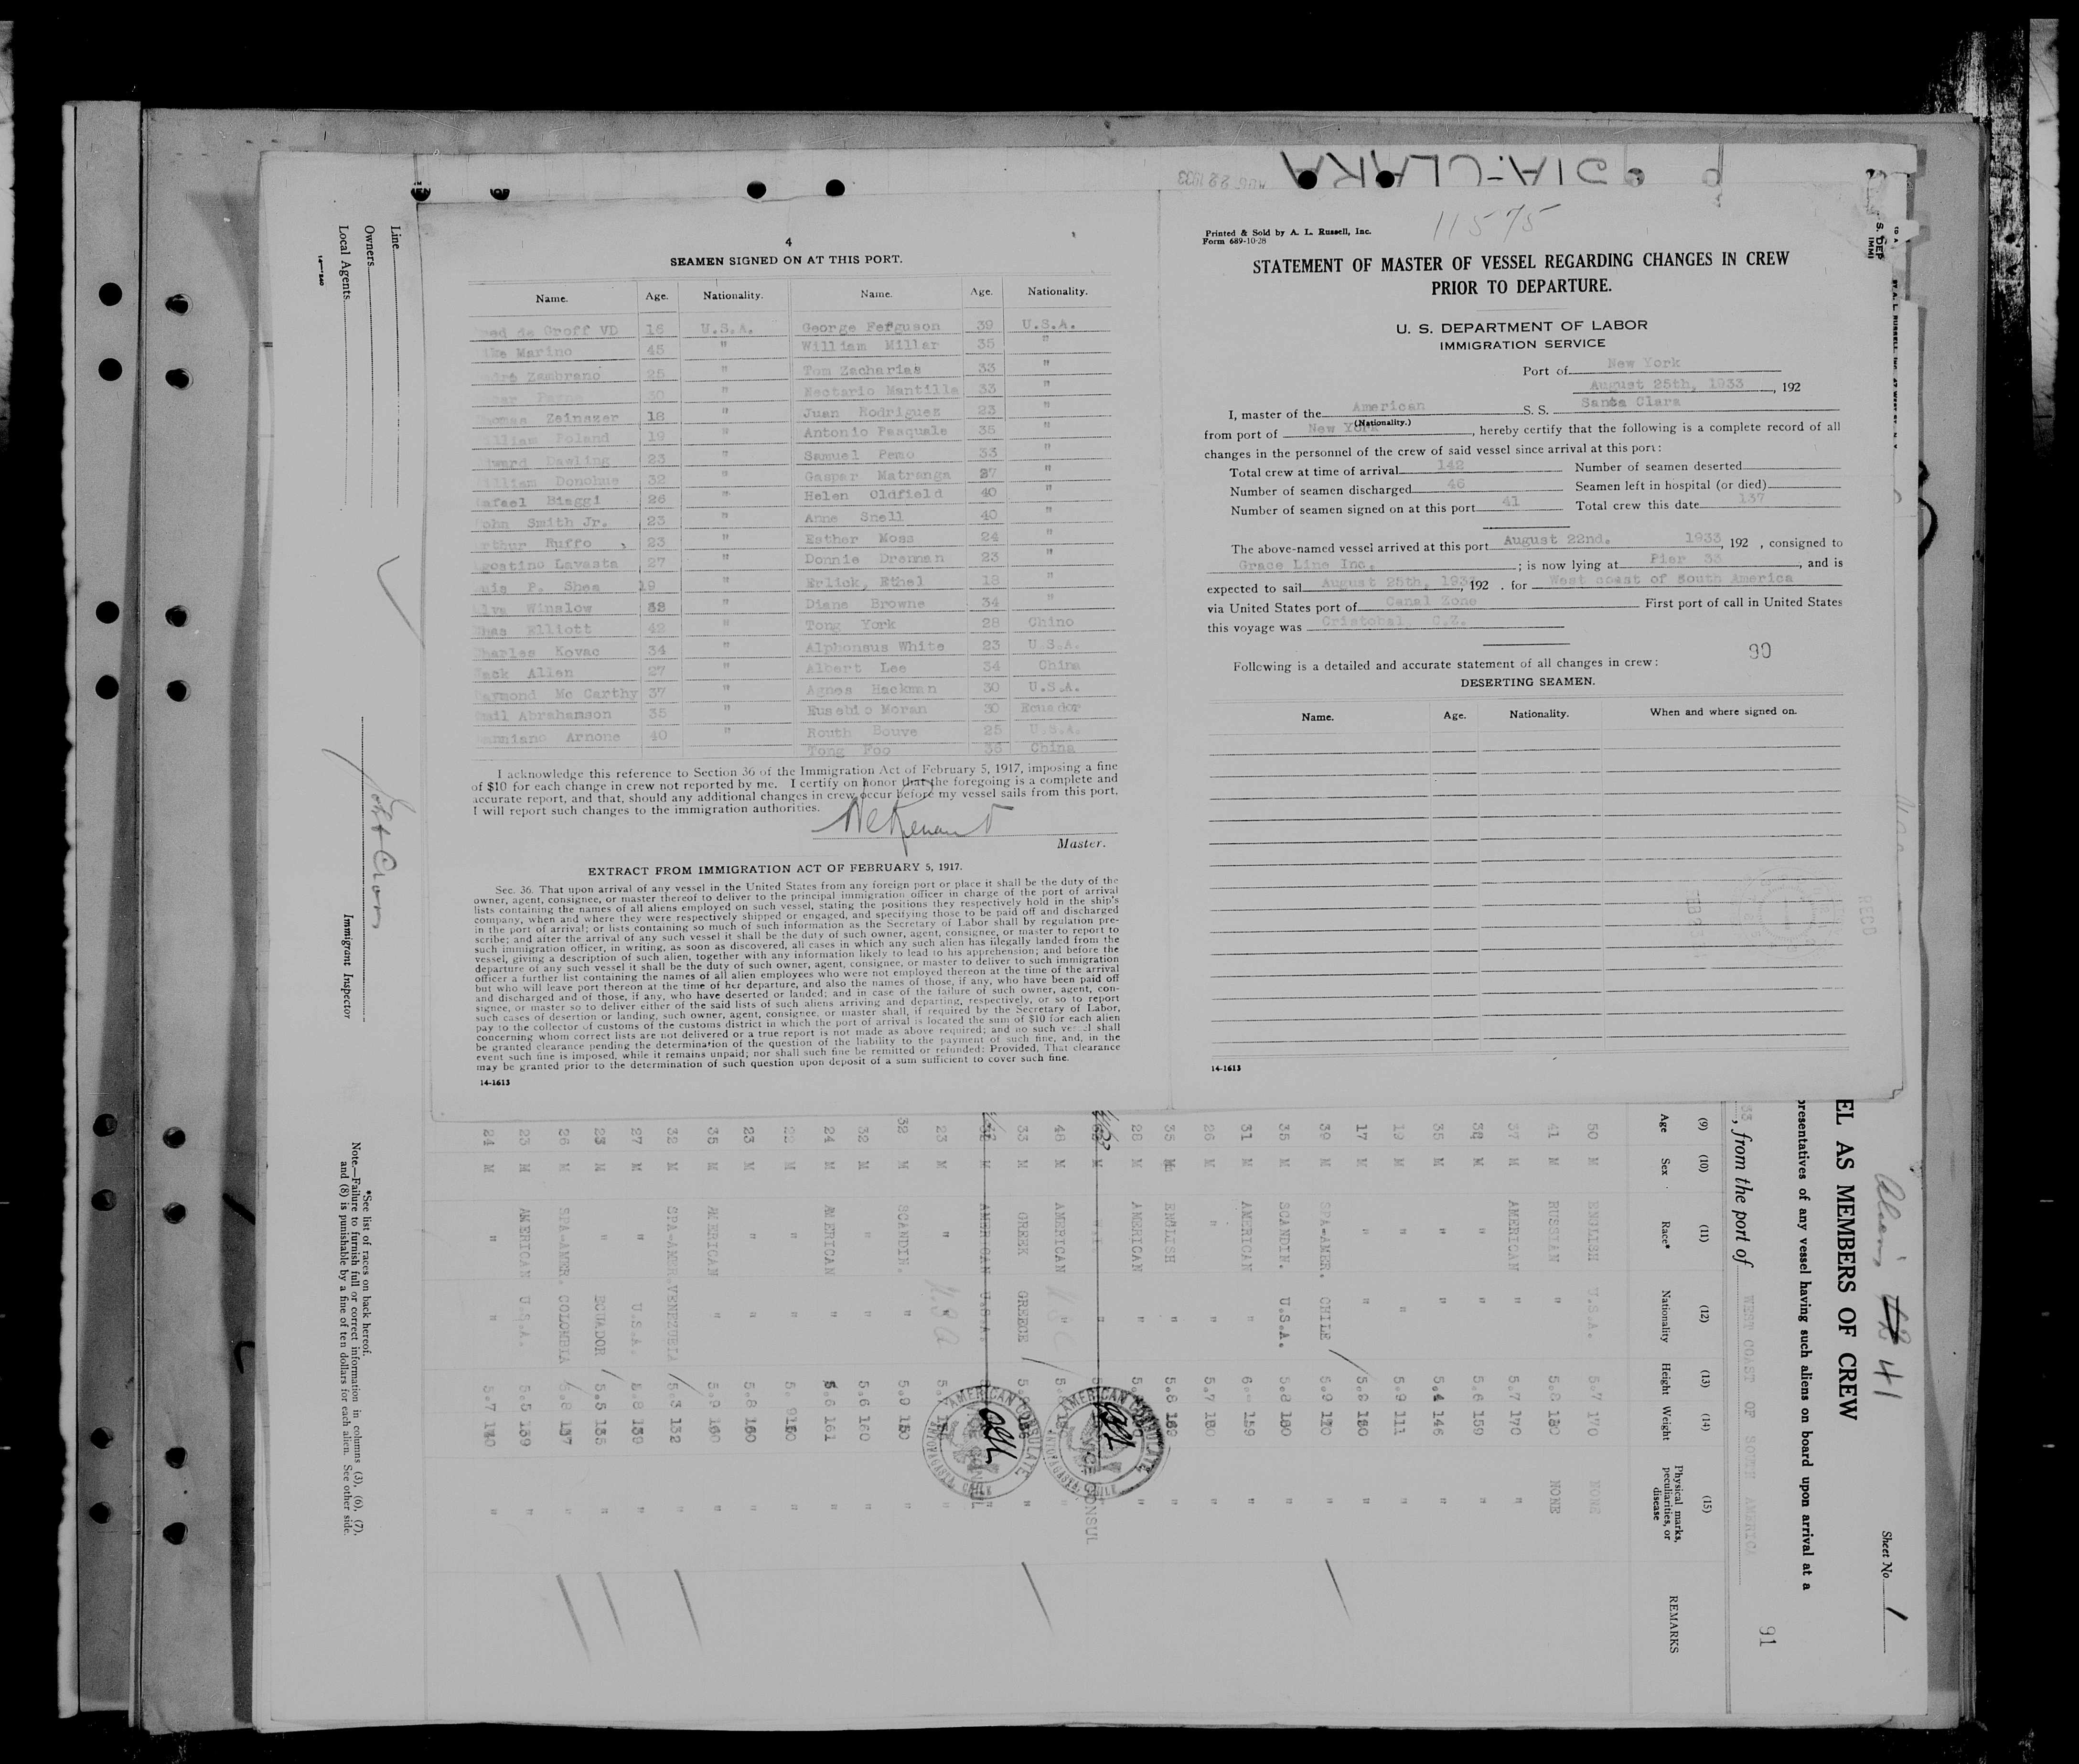 4
SEAMEN SIGNED ON AT THIS PORT.
Name. Age. Nationality. Name. Age. Nationality.
de Groff VD 16 U.S.A. George Ferguson 39 U.S.A.
Marino 45 " William Millar 35 "
Zambrano 25 " Tom Zacharias 33 "
30 " Nectario Mantilla 33 "
Zeinazer 18 " Juan Rodriguez 23 "
Poland 19 " Antonio Pasquale 35 "
Dawling 23 " Samuel Pemo 33 "
Donohue 32 " Gaspar Matranga 27 "
Biaggi 26 " Helen Oldfield 40 "
Smith Jr. 23 " Anne Snell 40 "
Ruffo , 23 " Esther Moss 24 "
Lavasta 27 " Donnie Drennan 23 "
P. Shea 19 " Erlick, Ethel 18 "
Winslow " Diane Browne 34 "
Elliott 42 " Tong York 28 Chino
Charles Kovac 34 " Alphonsus White 23 U.S.A.
Allen 27 " Albert Lee 34 China
Mc Carthy 37 " Agnes Hackman 30 U.S.A.
Abrahamson 35 " Eusebio Moran 30 Ecuador
Arnone 40 " Routh Bouve 25 U.S.A.
Tong Foo 36 China
I acknowledge this reference to Section 36 of the Immigration Act of February 5, 1917, imposing a fine
of $10 for each change in crew not reported by me. I certify on honor that the foregoing is a complete and
accurate report, and that, should any additional changes in crew occur before my vessel sails from this port,
I will report such changes to the immigration authorities.
Master.
EXTRACT FROM IMMIGRATION ACT OF FEBRUARY 5, 1917.
Sec. 36. That upon arrival of any vessel in the United States from any foreign port or place it shall be the duty of the
owner, agent, consignee, or master thereof to deliver to the principal immigration officer in charge of the port of arrival
lists containing the names of all aliens employed on such vessel, stating the positions they respectively hold in the ship's
company, when and where they were respectively shipped or engaged, and specifying those to be paid off and discharged
in the port of arrival; or lists containing so much of such information as the Secretary of Labor shall by regulation pre-
scribe; and after the arrival of any such vessel it shall be the duty of such owner, agent, consignee, or master to report to
such immigration officer, in writing, as soon as discovered, all cases in which any such alien has illegally landed from the
vessel, giving a description of such alien, together with any information likely to lead to his apprehension; and before the
departure of any such vessel it shall be the duty of such owner, agent, consignee, or master to deliver to such immigration
officer a further list containing the names of all alien employees who were not employed thereon at the time of the arrival
but who will leave port thereon at the time of her departure, and also the names of those, if any, who have been paid off
and discharged and of those, if any, who have deserted or landed; and in case of the failure of such owner, agent, con-
signee, or master so to deliver either of the said lists of such aliens arriving and departing, respectively, or so to report
such cases of desertion or landing, such owner, agent, consignee, or master shall, if required by the Secretary of Labor,
pay to the collector of customs of the customs district in which the port of arrival is located the sum of $10 for each alien
concerning whom correct lists are not delivered or a true report is not made as above required; and no such vessel shall
be granted clearance pending the determination of the question of the liability to the payment of such fine, and, in the
event such fine is imposed, while it remains unpaid; nor shall such fine be remitted or refunded: Provided, That clearance
may be granted prior to the determination of such question upon deposit of a sum sufficient to cover such fine.
14-1613
11575
Printed & Sold by A. L. Russell, Inc.
Form 689-10-28
STATEMENT OF MASTER OF VESSEL REGARDING CHANGES IN CREW
PRIOR TO DEPARTURE.
U. S. DEPARTMENT OF LABOR
IMMIGRATION SERVICE
Port of New York
August 25th, 1933, 192
I, master of the American S. S. Santa Clara
(Nationality.)
from port of New York, hereby certify that the following is a complete record of all
changes in the personnel of the crew of said vessel since arrival at this port:
Total crew at time of arrival 142 Number of seamen deserted
Number of seamen discharged 46 Seamen left in hospital (or died)
Number of seamen signed on at this port 41 Total crew this date 137
The above-named vessel arrived at this port August 22nd. 1933, 192 , consigned to
Grace Line Inc. ; is now lying at Pier 33, and is
expected to sail August 25th, 1933, 192 . for West coast of South America
via United States port of Canal Zone First port of call in United States
this voyage was Cristobal, C.Z.
90
Following is a detailed and accurate statement of all changes in crew:
DESERTING SEAMEN.
Name. Age. Nationality. When and where signed on.
14-1613
Line
Owners
Local Agents
Immigrant Inspector
*See list of races on back hereof.
Note.—Failure to furnish full or correct information in columns (3), (6), (7),
and (8) is punishable by a fine of ten dollars for each alien. See other side.
Sheet No. 1
41
EL AS MEMBERS OF CREW
presentatives of any vessel having such aliens on board upon arrival at a
, from the port of WEST COAST OF SOUTH AMERICA
91
(9) (10) (11) (12) (13) (14) (15)
Age Sex Race* Nationality Height Weight Physical marks, peculiarities, or disease REMARKS
50 M ENGLISH U.S.A. 5.7 170 NONE
41 M RUSSIAN " NONE
37 M AMERICAN " 5.7 170 "
M " " 5.6 159 "
35 M " " 5.4 146 "
19 M " " 5.9 111 "
17 M " " "
39 M SPA-AMER. CHILE "
35 M SCANDIN. U.S.A. "
31 M AMERICAN " "
26 M " " 5.7 "
35 M ENGLISH " 5.8 "
28 M AMERICAN " "
48 M AMERICAN "
33 M GREEK GREECE "
M AMERICAN U.S.A. "
23 M " "
32 M SCANDIN. " "
32 M " " 5.6 160 "
24 M AMERICAN " 5.6 161 "
M " " "
23 M " " 5.8 160 "
35 M AMERICAN " "
32 M SPA-AMER. VENEZUELA 5.3 132 "
27 M " U.S.A. "
23 M " ECUADOR 5.5 135 "
26 M SPA-AMER. COLOMBIA "
23 M AMERICAN U.S.A. 5.5 139 "
24 M " " 5.7 "
AMERICAN CONSULATE
ANTOFAGASTA, CHILE
VICE CONSUL